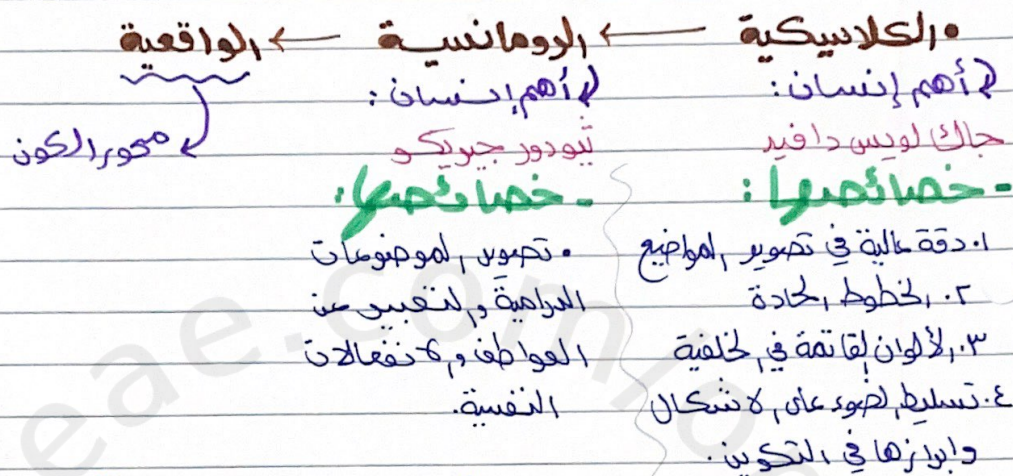 • الكلاسيكية ← الرومانسية ← الواقعية
أهم إنسان:
جاك لويس دافيد
- خصائصها:
١. دقة عالية في تصوير المواضيع
٢. الخطوط الحادة
٣. الألوان القاتمة في الخلفية
٤. تسليط الضوء على الاشكال
وابرازها في التكوين.
أهم إنسان:
ثيودور جيريكو
- خصائصها:
• تصوير الموضوعات
الدرامية والتعبير عن
العواطف والانفعالات
النفسية.
محور الكون
eae.com/